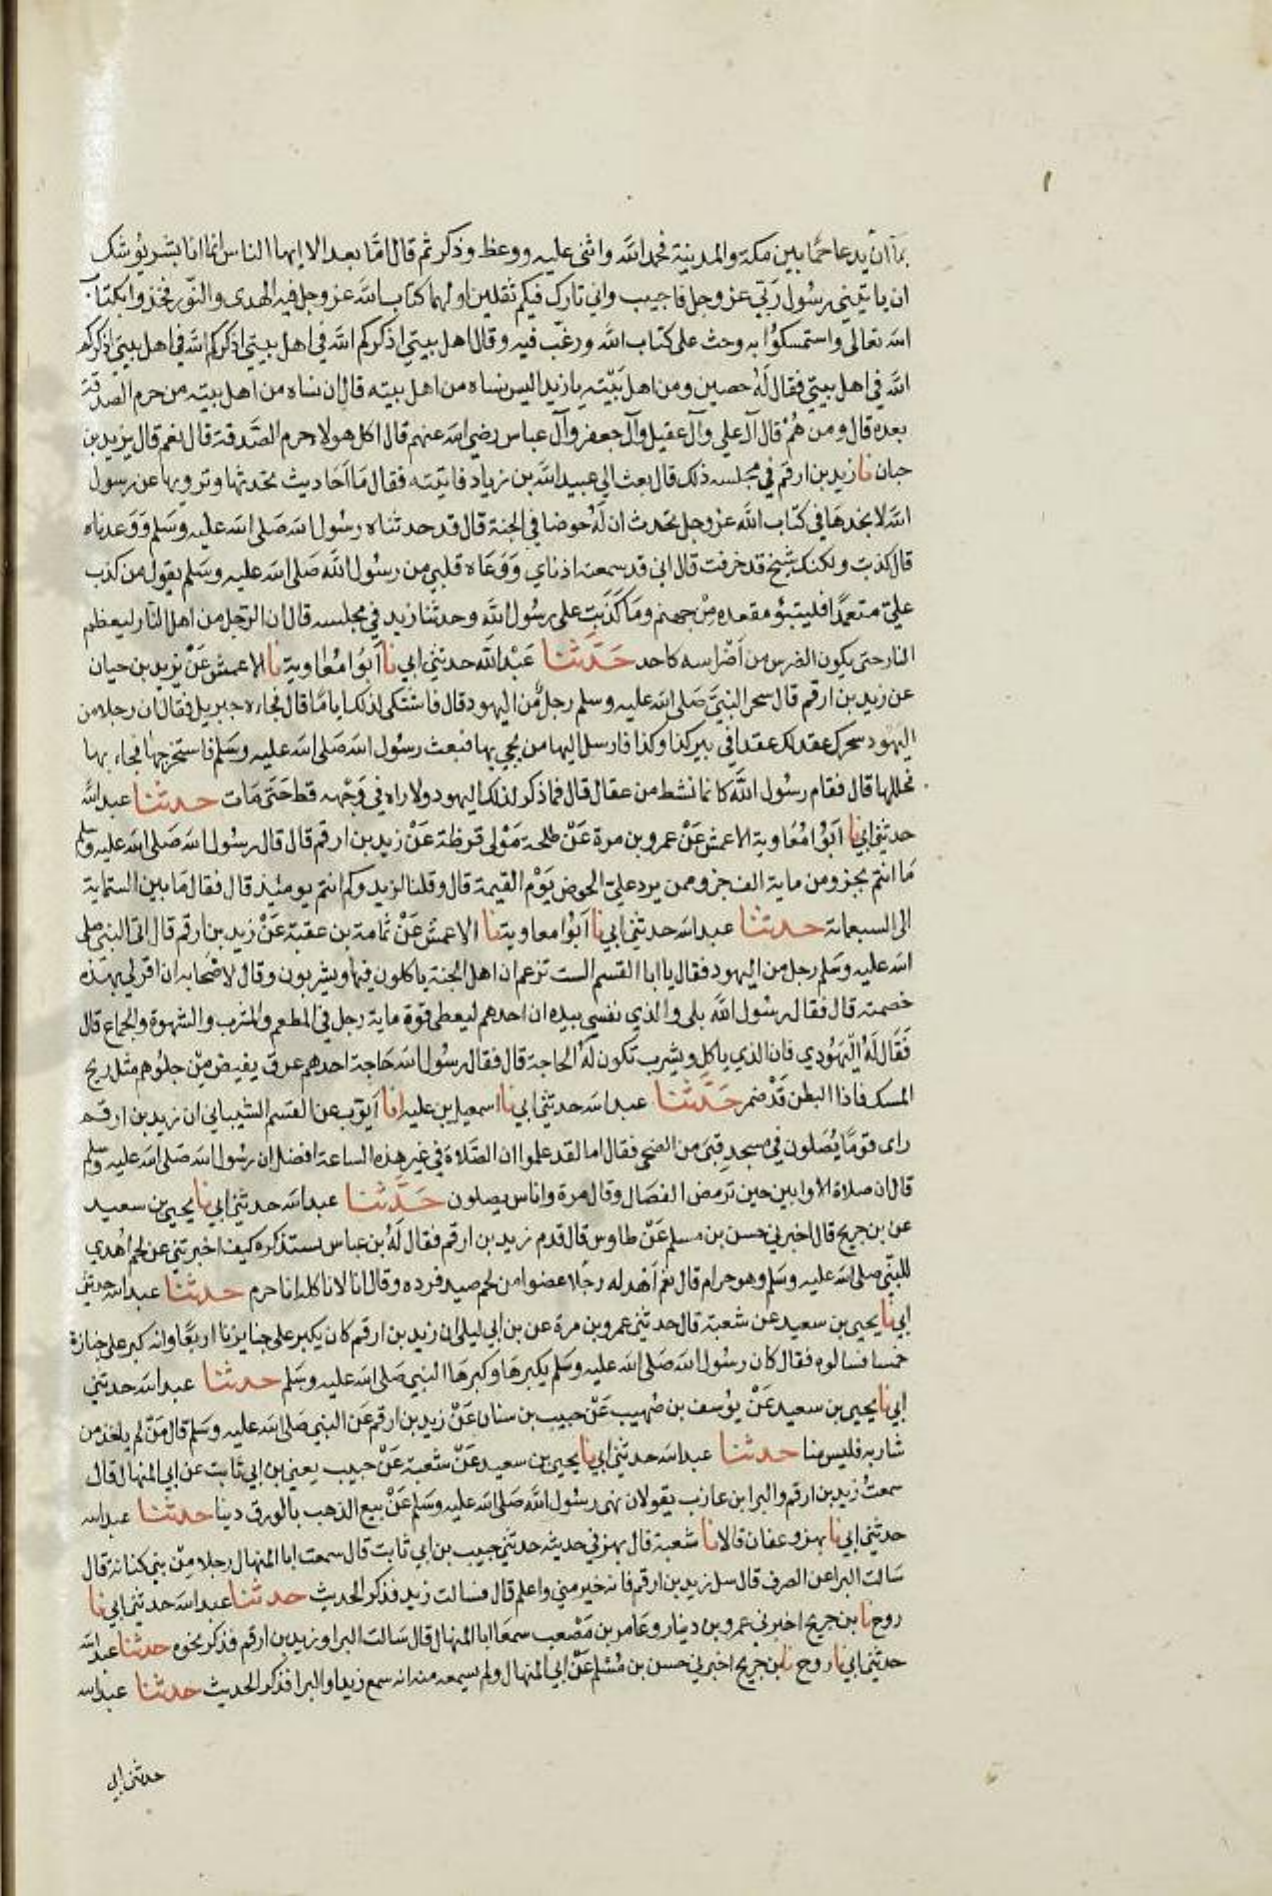 بماء ان يدعا خما بين مكة والمدينة فحمد الله واثنى عليه ووعظ وذكر ثم قال اما بعد الا ايها الناس انما انا بشر يوشك
ان ياتيني رسول ربي عز وجل فاجيب واني تارك فيكم ثقلين اولهما كتاب الله عز وجل فيه الهدى والنور فخذوا بكتاب
الله تعالى واستمسكوا به وحث على كتاب الله ورغب فيه وقال اهل بيتي اذكركم الله في اهل بيتي اذكركم الله في اهل بيتي اذكركم
الله في اهل بيتي فقال له حصين ومن اهل بيته يا زيد اليس نساه من اهل بيته قال ان نساه من اهل بيته من حرم الصدقة
بعده قال ومن هم قال آل علي وآل عقيل وآل جعفر وآل عباس رضي الله عنهم قال اكل هولاء حرم الصدقة قال نعم قال يزيد بن
حبان نا زيد بن ارقم في مجلسه ذلك قال بعث الي عبيد الله بن زياد فاتيته فقال ما احاديث تحدثها وترويها عن رسول
الله لا نجدها في كتاب الله عز وجل تحدث ان له حوضا في الجنة قال قد حدثناه رسول الله صلى الله عليه وسلم ووعدناه
قال كذبت ولكنك شيخ قد خرفت قال اني قد سمعته اذناي ووعاه قلبي من رسول الله صلى الله عليه وسلم يقول من كذب
علي متعمدا فليتبؤ مقعده من جهنم وما كذبت على رسول الله وحدثنا زيد في مجلسه قال ان الرجل من اهل النار ليعظم
النار حتى يكون الضرس من اضراسه كاحد حدثنا عبد الله حدثني ابي نا ابو امعاوية نا الاعمش عن يزيد بن حيان
عن زيد بن ارقم قال سحر النبي صلى الله عليه وسلم رجل من اليهود قال فاشتكى لذلك اياما قال فجاءه جبريل فقال ان رجلا من
اليهود سحرك عقد لك عقدا في بير كذا وكذا فارسل اليها من يجي بها فبعث رسول الله صلى الله عليه وسلم فاستخرجها فجاء بها
فحللها قال فقام رسول الله كانما نشط من عقال قال فما ذكر لذلك اليهود ولا راه في وجهه قط حتى مات حدثنا عبد الله
حدثني ابي نا ابو امعاوية الاعمش عن عمرو بن مرة عن طلحة مولى قرظة عن زيد بن ارقم قال قال رسول الله صلى الله عليه وسلم
ما انتم بجزو من ماية الف جزو ممن يرد علي الحوض يوم القيمة قال وقلنا لزيد وكم انتم يومئيذ قال فقال ما بين الستماية
الى السبعماية حدثنا عبد الله حدثني ابي نا ابوا معاوية نا الاعمش عن ثمامة بن عقبة عن زيد بن ارقم قال اتى النبي صلى
الله عليه وسلم رجل من اليهود فقال يا ابا القسم الست تزعم ان اهل الجنة ياكلون فيها ويشربون وقال لاصحابه ان اقر لي بهذه
خصمته قال فقال رسول الله بلى والذي نفسي بيده ان احدهم ليعطى قوة ماية رجل في المطعم والمشرب والشهوة والجماع قال
فقال له اليهودي فان الذي ياكل ويشرب تكون له الحاجة قال فقال رسول الله حاجة احدهم عرق يفيض من جلوهم مثل ريح
المسك فاذا البطن قد ضمر حدثنا عبد الله حدثني ابي نا اسمعيل بن عليه انا ايوب عن القسم الشيباني ان زيد بن ارقم
راى قوما يصلون في مسجد قبى من الضحى فقال اما لقد علموا ان الصلاة في غير هذه الساعة افضل ان رسول الله صلى الله عليه وسلم
قال ان صلاة الاوابين حين ترمض الفصال وقال مرة واناس يصلون حدثنا عبد الله حدثني ابي نا يحيى بن سعيد
عن بن جريج قال اخبرني حسن بن مسلم عن طاوس قال قدم زيد بن ارقم فقال له بن عباس يستذكره كيف اخبرتني عن لحم اهدي
للنبي صلى الله عليه وسلم وهو حرام قال نعم اهدى له رجلا عضوا من لحم صيد فرده وقال انا لا ناكله انا حرم حدثنا عبد الله حدثني
ابي نا يحيى بن سعيد عن شعبة قال حدثني عمرو بن مرة عن بن ابي ليلى ان زيد بن ارقم كان يكبر على جنايزنا اربعا وانه كبر على جنازة
خمسا فسالوه فقال كان رسول الله صلى الله عليه وسلم يكبرها وكبرها النبي صلى الله عليه وسلم حدثنا عبد الله حدثني
ابي نا يحيى بن سعيد عن يوسف بن صهيب عن حبيب بن سنان عن زيد بن ارقم عن النبي صلى الله عليه وسلم قال من لم ياخذ من
شاربه فليس منا حدثنا عبد الله حدثني ابي نا يحيى بن سعيد عن شعبة عن حبيب يعني بن ابي ثابت عن ابي المنهال قال
سمعت زيد بن ارقم والبرا ابن عازب يقولان نهى رسول الله صلى الله عليه وسلم عن بيع الذهب بالورق دينا حدثنا عبد الله
حدثني ابي نا بهز وعفان قالا نا شعبة قال بهز في حديثه حدثني حبيب بن ابي ثابت قال سمعت ابا المنهال رجلا من بني كنانة قال
سالت البرا عن الصرف قال سل زيد بن ارقم فانه خير مني واعلم قال فسالت زيد فذكر الحديث حدثنا عبد الله حدثني ابي نا
روح نا بن جريج اخبرني عمرو بن دينار وعامر بن مصعب سمعا ابا المنهال قال سالت البرا وزيد بن ارقم فذكر نحوه حدثنا عبد الله
حدثني ابي نا روح نا بن جريج اخبرني حسن بن مسلم عن ابي المنهال ولم يسمعه منه انه سمع زيدا والبرا فذكر الحديث حدثنا عبد الله
حدثني ابي